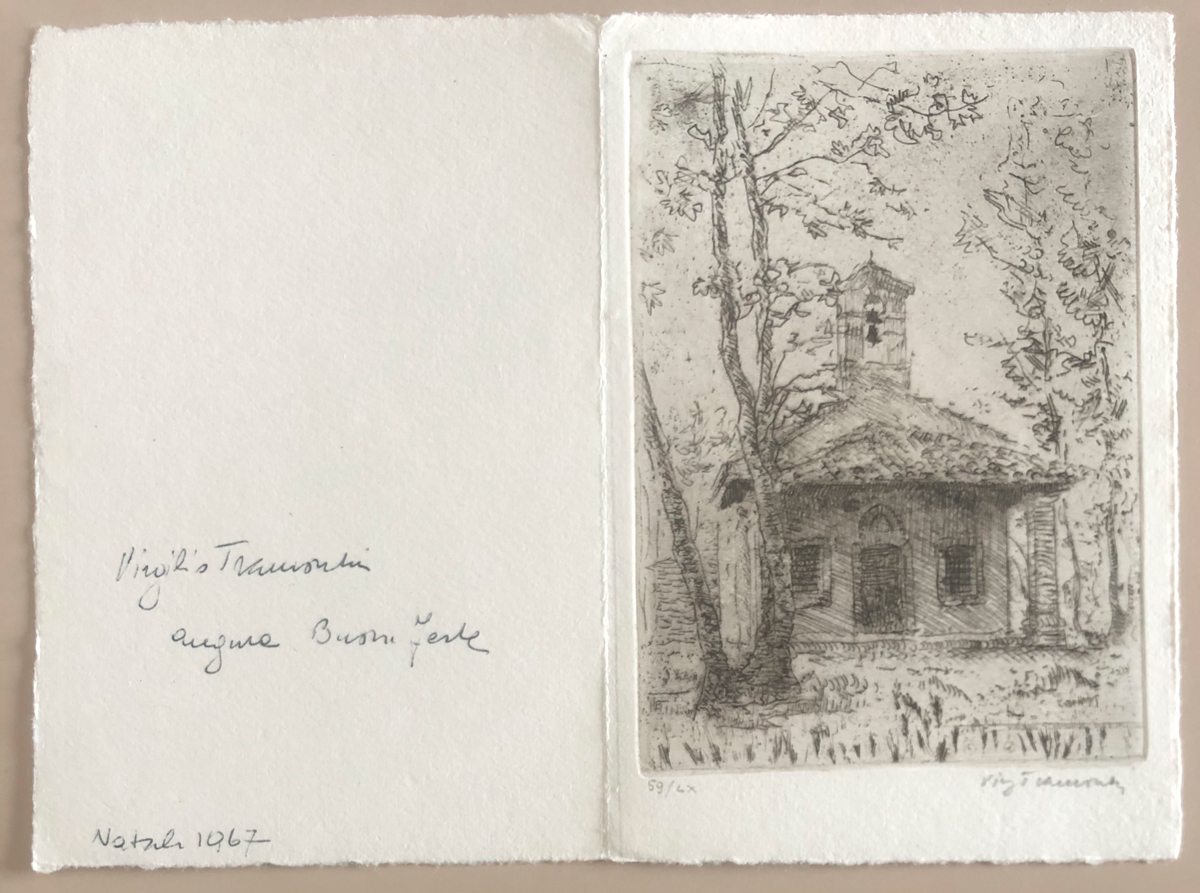 Virgilio Tramontin
augura Buone Feste
Natale 1967
59/LX
Virg Tramontin